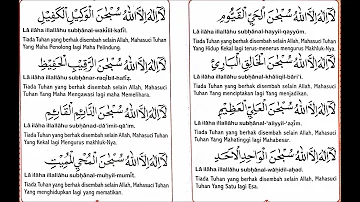 لَا إِلٰهَ إِلَّا اللّٰهُ سُبْحٰنَ الْوَكِيْلِ الْكَفِيْلِ
Lâ ilâha illallâhu subḥânal-wakîlil-kafîl.
Tiada Tuhan yang berhak disembah selain Allah, Mahasuci
Tuhan Yang Maha Penolong lagi Maha Pelindung.
لَا إِلٰهَ إِلَّا اللّٰهُ سُبْحٰنَ الرَّقِيْبِ الْحَفِيْظِ
Lâ ilâha illallâhu subḥânar-raqîbil-ḥafîẓ.
Tiada Tuhan yang berhak disembah selain Allah, Mahasuci
Tuhan Yang Mengawasi lagi Maha Memelihara.
لَا إِلٰهَ إِلَّا اللّٰهُ سُبْحٰنَ الدَّائِمِ الْقَائِمِ
Lâ ilâha illallâhu subḥânad-dâ'imil-qâ'im.
Tiada Tuhan yang berhak disembah selain Allah, Mahasuci Tuhan
Yang Kekal lagi Mengurus makhluk-Nya.
لَا إِلٰهَ إِلَّا اللّٰهُ سُبْحٰنَ الْمُحْيِى الْمُمِيْتِ
Lâ ilâha illallâhu subḥânal-muḥyil-mumît.
Tiada Tuhan yang berhak disembah selain Allah, Mahasuci Tuhan
Yang menghidupkan lagi yang mematikan.
لَا إِلٰهَ إِلَّا اللّٰهُ سُبْحٰنَ الْحَيِّ الْقَيُّوْمِ
Lâ ilâha illallâhu subḥânal-ḥayyil-qayyûm.
Tiada Tuhan yang berhak disembah selain Allah, Mahasuci Tuhan
Yang Hidup Kekal lagi terus-menerus mengurus Makhluk-Nya.
لَا إِلٰهَ إِلَّا اللّٰهُ سُبْحٰنَ الْخَالِقِ الْبَارِئِ
Lâ ilâha illallâhu subḥânal-khâliqil-bâri'i.
Tiada Tuhan yang berhak disembah selain Allah, Mahasuci Tuhan
Yang menciptakan lagi Yang menjadikan.
لَا إِلٰهَ إِلَّا اللّٰهُ سُبْحٰنَ الْعَلِيِّ الْعَظِيْمِ
Lâ ilâha illallâhu subḥânal-'aliyyil-'aẓîm.
Tiada Tuhan yang berhak disembah selain Allah, Mahasuci Tuhan
Yang Mahatinggi lagi Mahabesar.
لَا إِلٰهَ إِلَّا اللّٰهُ سُبْحٰنَ الْوَاحِدِ الْاَحَدِ
Lâ ilâha illallâhu subḥânal-wâḥidil-aḥad.
Tiada Tuhan yang berhak disembah selain Allah, Mahasuci
Tuhan Yang Satu lagi Esa.